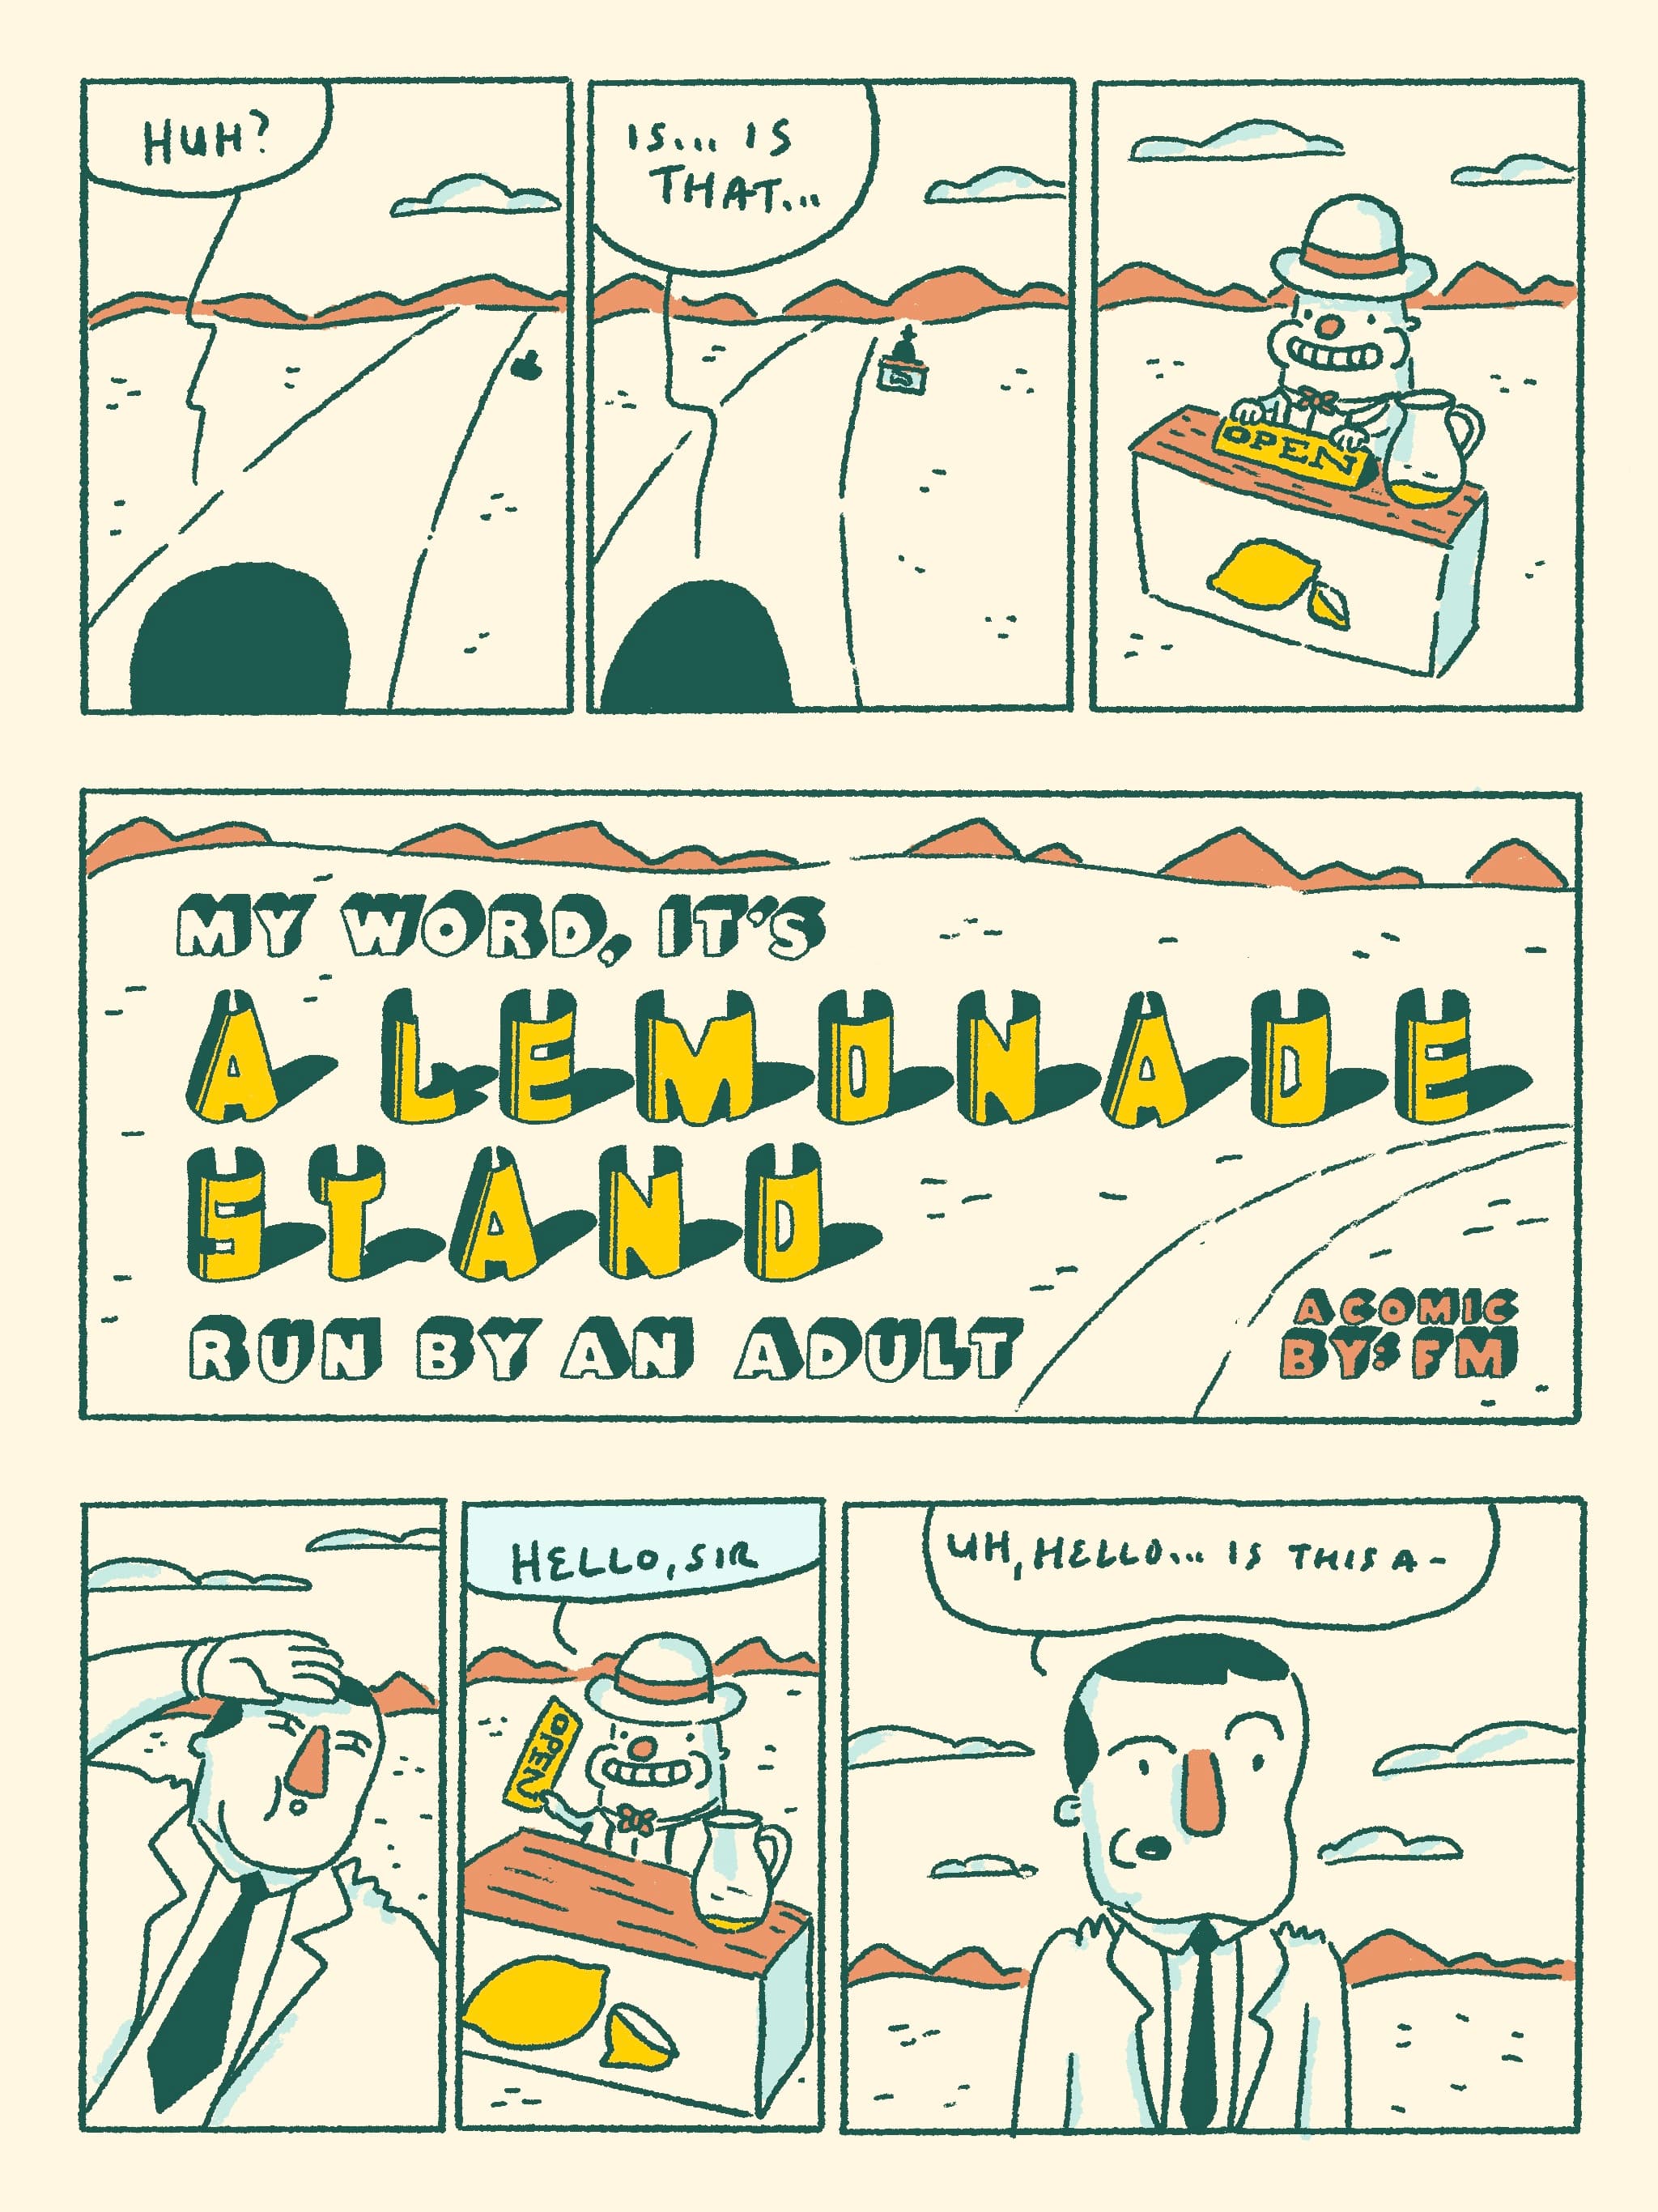 HUH?
IS... IS
THAT...
OPEN
MY WORD, IT'S
A LEMONADE
STAND
RUN BY AN ADULT
A COMIC
BY: FM
HELLO, SIR
OPEN
UH, HELLO... IS THIS A-